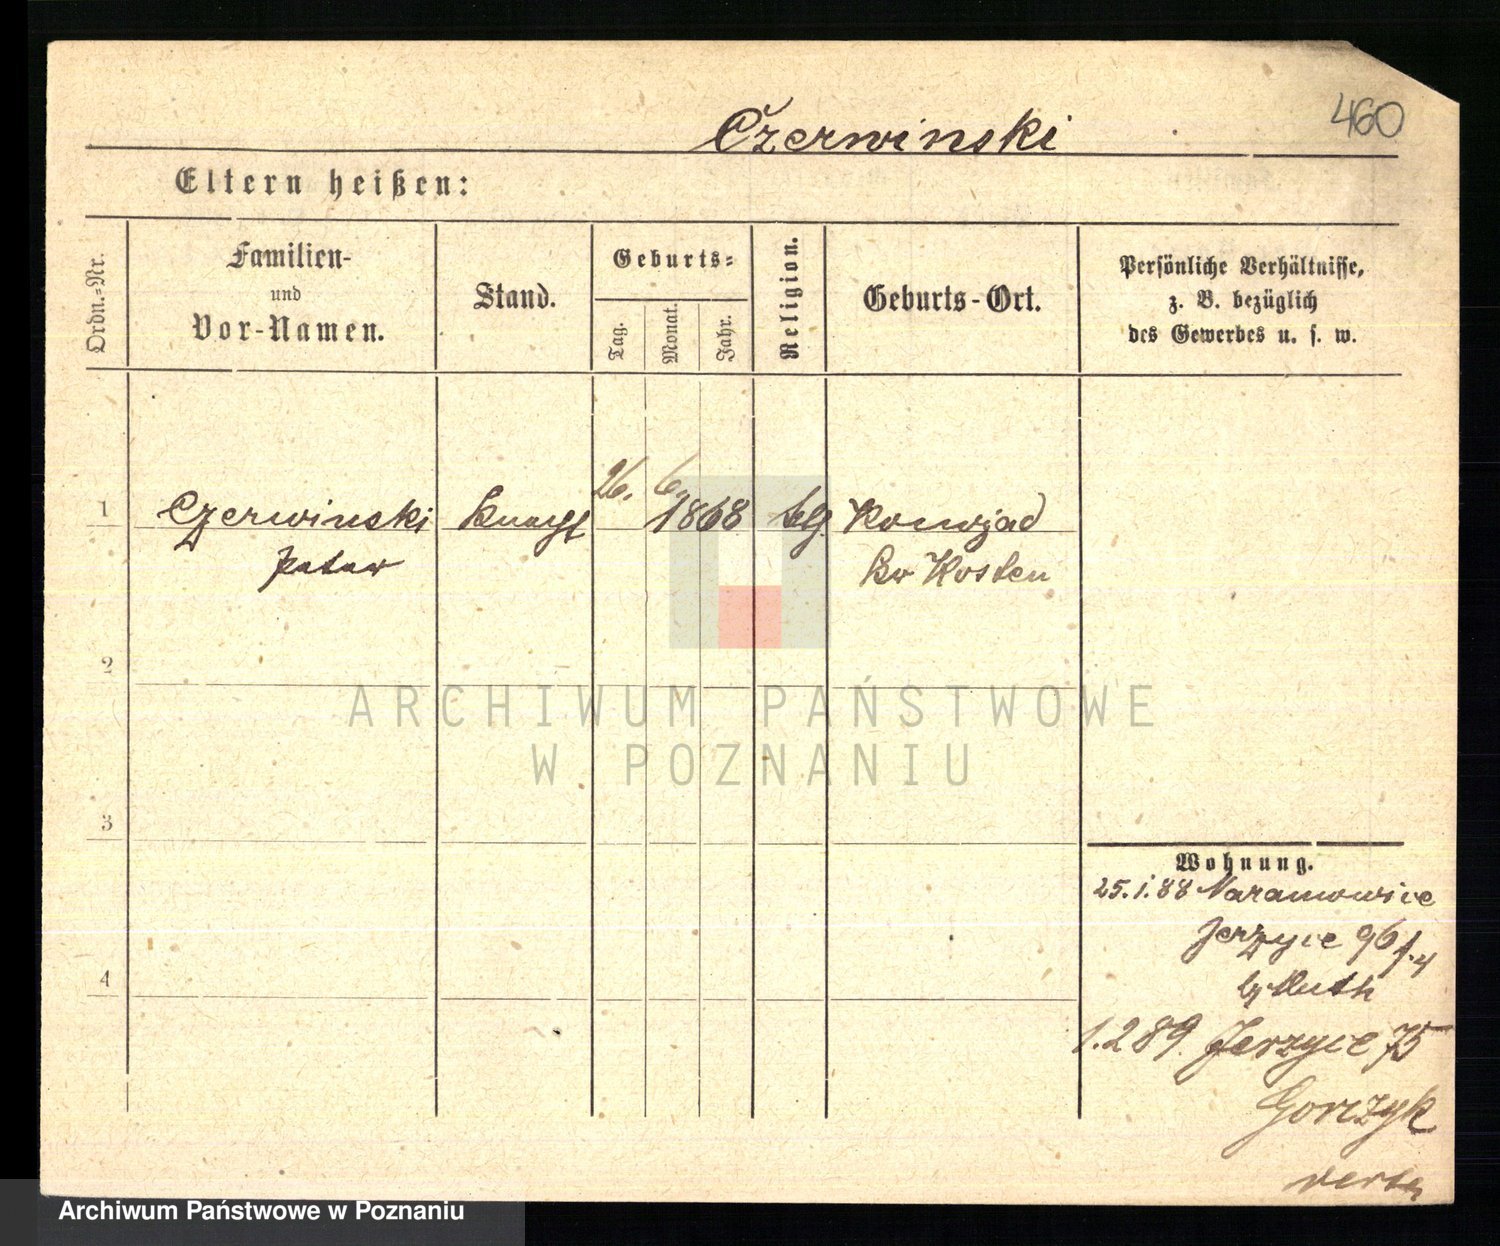 Czerwinski
460
Eltern heißen:
Ordn.-Nr.
Familien-
und
Vor-Namen.
Stand.
Geburts-
Tag.
Monat.
Jahr.
Religion.
Geburts-Ort.
Persönliche Verhältnisse,
z. B. bezüglich
des Gewerbes u. s. w.
1
Czerwinski
Peter
Knecht
26.
6.
1868
Konojad
Kr Kosten
2
3
4
Wohnung.
25.1.88 Naramowice
Jerzyce 96
1.2 89. Jerzyce 75
Gorczyk
ARCHIWUM PAŃSTWOWE
W POZNANIU
Archiwum Państwowe w Poznaniu